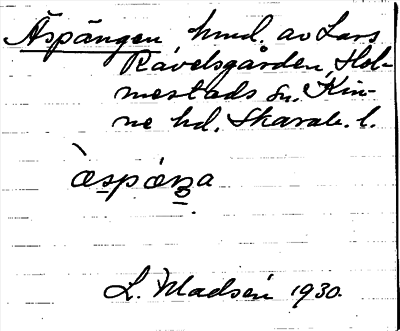 Äspängen hmd. av Lars
Rävelsgården, Hol-
mestads sn. Kin-
ne hd. Skarab. l.
L. Madsén 1930.